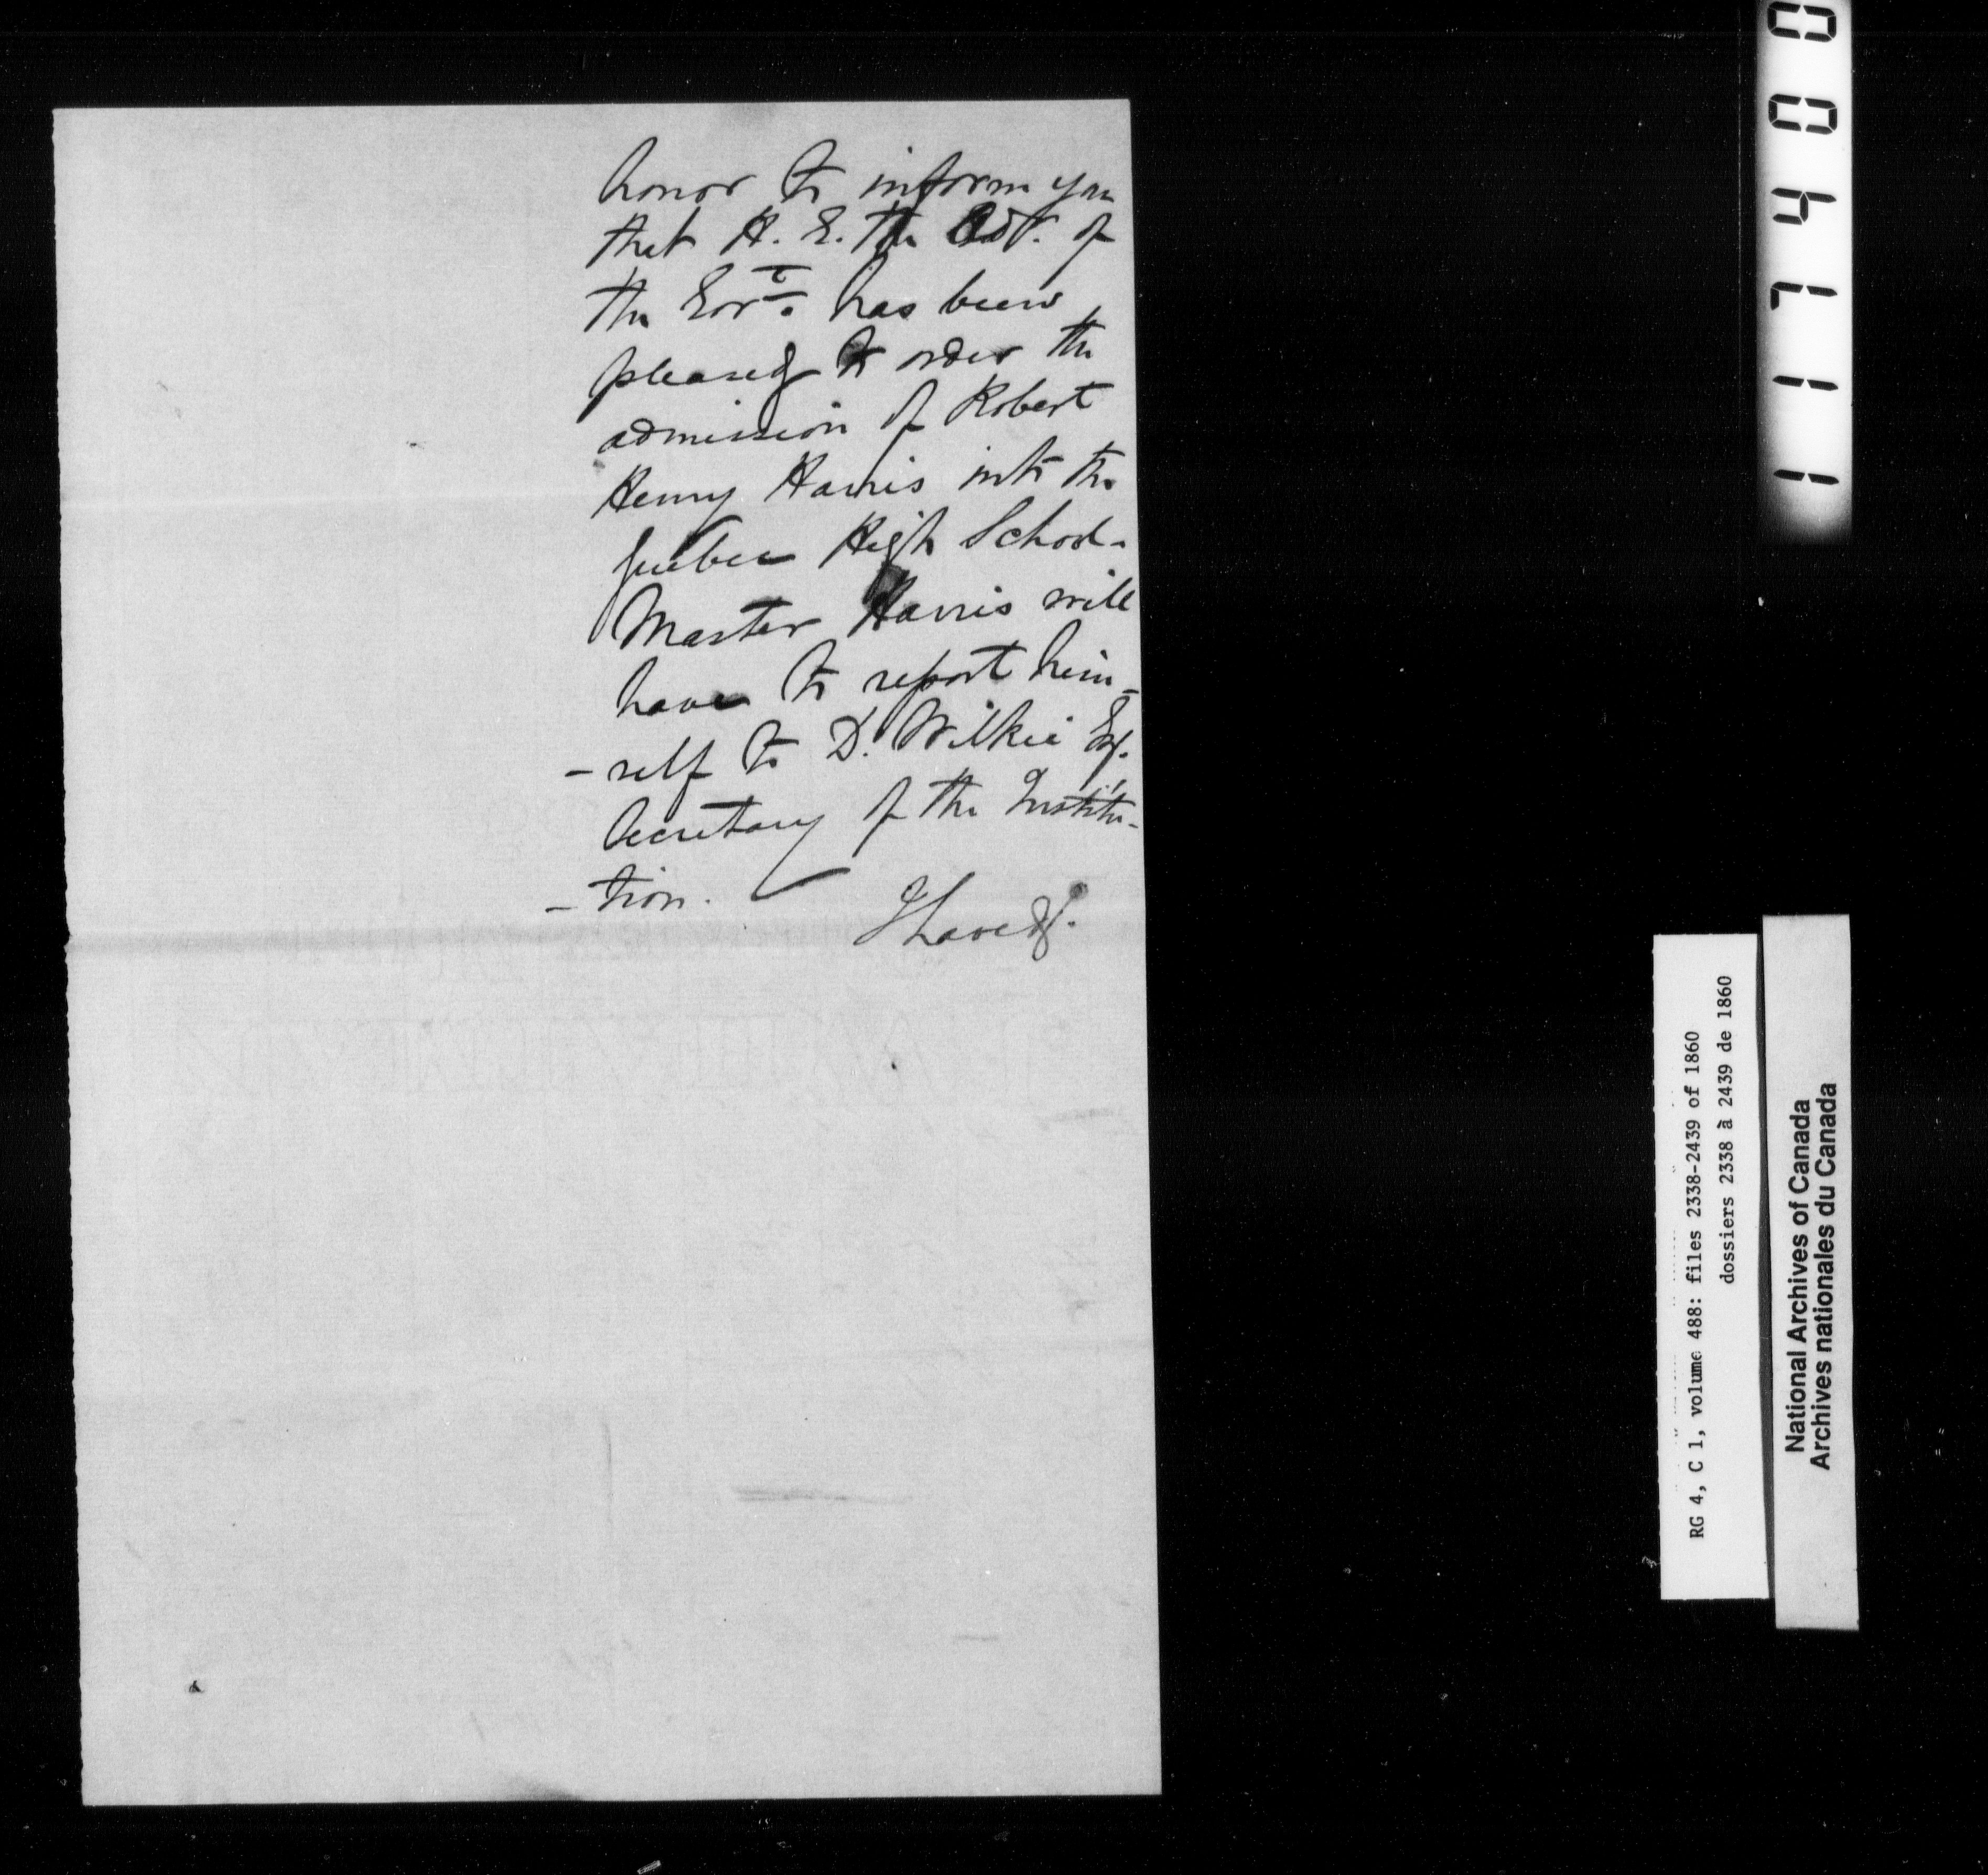 honor to inform you
that H. E. the Adr. of
the Govt. has been
pleased to order the
admission of Robert
Henry Harris into the
Quebec High School.
Master Harris will
have to report him-
-self to D. Wilkie Esq.
Secretary of the Institu-
-tion.
I have &c.
117400
RG 4, C 1, volume 488: files 2338-2439 of 1860
dossiers 2338 à 2439 de 1860
National Archives of Canada
Archives nationales du Canada